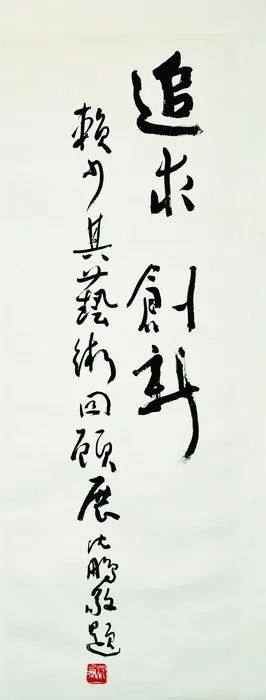 追求創新
賴少其藝術回顧展
沈鵬敬題